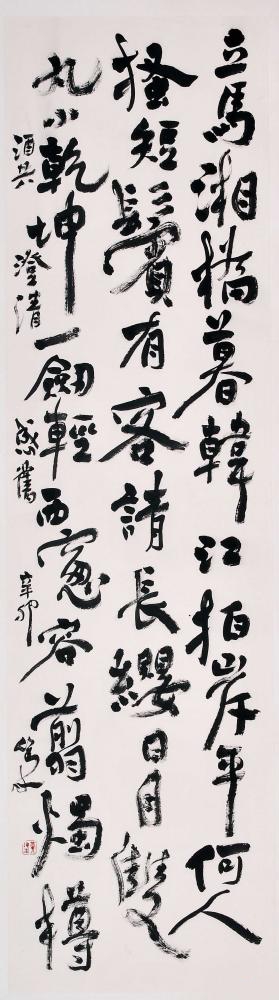 立馬湘橋暮韓江拍岸平何人
搔短鬢有客請長纓日月雙
丸小乾坤一劍輕西窗容翦燭樽
酒共澄清感舊辛卯